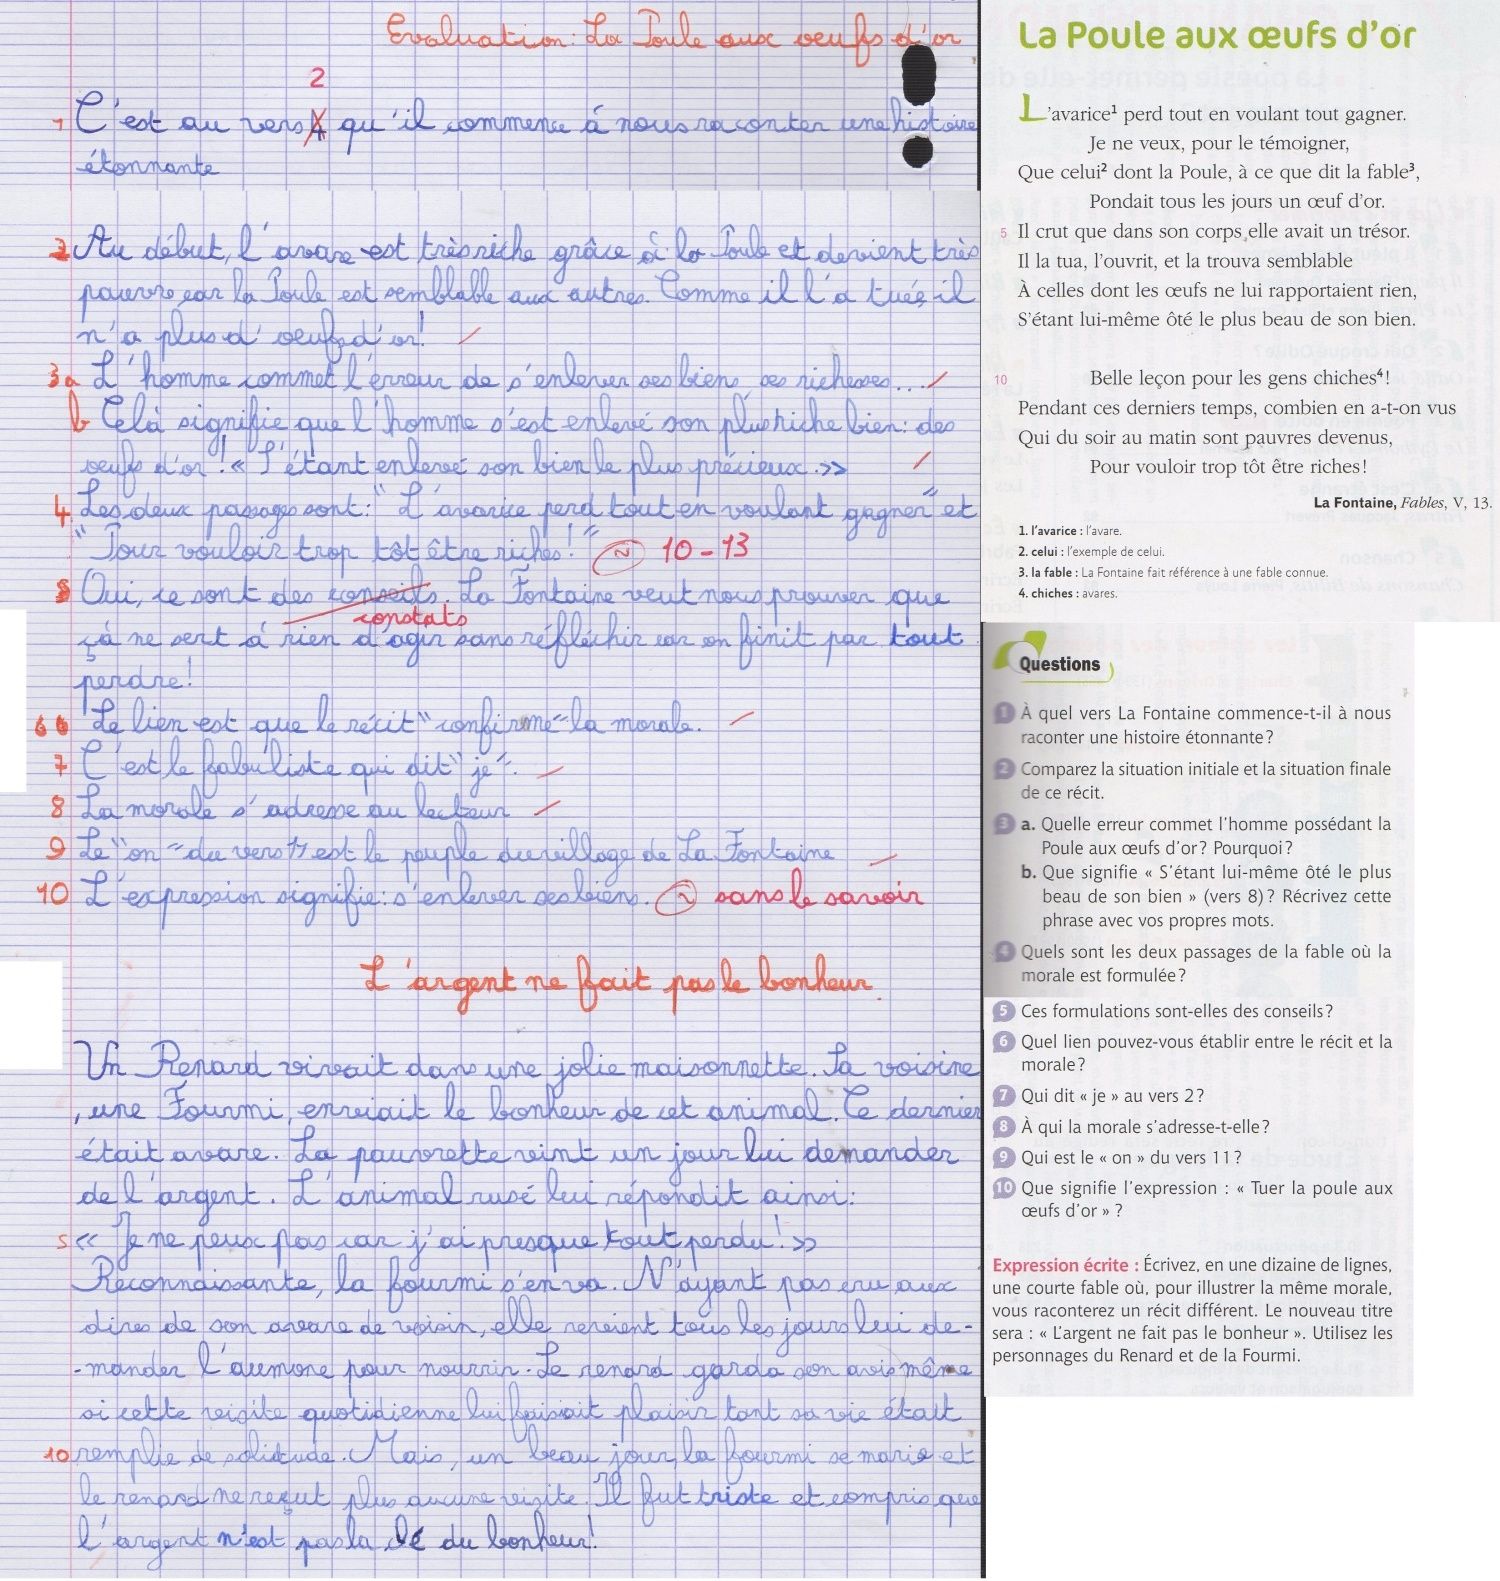 Evaluation: La Poule aux oeufs d'or
2
1 C'est au vers 4 qu'il commence à nous raconter une histoire
étonnante
2 Au début, l'avare est très riche grâce à la Poule et devient très
pauvre car la Poule est semblable aux autres. Comme il l'a tuée, il
n'a plus d'oeufs d'or!
3a L'homme commet l'érreur de s'enlever ses biens, ses richesses...
b Celà signifie que l'homme s'est enlevé son plus riche bien: des
oeufs d'or! « S'étant enlevé son bien le plus précieux. »
4 Les deux passages sont: "L'avarice perd tout en voulant gagner" et
"Pour vouloir trop tôt être riches!" 2 10-13
5 Oui, ce sont des conseils. La Fontaine veut nous prouver que
constats
çà ne sert à rien d'agir sans réfléchir car on finit par tout
perdre!
6 Le lien est que le récit "confirme" la morale.
7 C'est le fabuliste qui dit "je".
8 La morale s'adresse au lecteur
9 Le "on" du vers 11 est le peuple du village de La Fontaine
10 L'expression signifie: s'enlever ses biens. 2 sans le savoir
L'argent ne fait pas le bonheur.
Un Renard vivait dans une jolie maisonnette. Sa voisine
, une Fourmi, enviait le bonheur de cet animal. Ce dernier
était avare. La pauvrette vint un jour lui demander
de l'argent. L'animal rusé lui répondit ainsi:
5 « Je ne peux pas car j'ai presque tout perdu! »
Reconnaissante, la fourmi s'en va. N'ayant pas cru aux
dires de son avare de voisin, elle revient tous les jours lui de-
-mander l'aumone pour nourrir. Le renard garda son avis même
si cette visite quotidienne lui faisait plaisir tant sa vie était
10 remplie de solitude. Mais, un beau jour, la fourmi se marie et
le renard ne reçut plus aucune visite. Il fut triste et compris que
l'argent n'est pas la clé du bonheur!
La Poule aux œufs d'or
L'avarice¹ perd tout en voulant tout gagner.
Je ne veux, pour le témoigner,
Que celui² dont la Poule, à ce que dit la fable³,
Pondait tous les jours un œuf d'or.
5 Il crut que dans son corps elle avait un trésor.
Il la tua, l'ouvrit, et la trouva semblable
À celles dont les œufs ne lui rapportaient rien,
S'étant lui-même ôté le plus beau de son bien.
10 Belle leçon pour les gens chiches⁴ !
Pendant ces derniers temps, combien en a-t-on vus
Qui du soir au matin sont pauvres devenus,
Pour vouloir trop tôt être riches !
La Fontaine, Fables, V, 13.
1. l'avarice : l'avare.
2. celui : l'exemple de celui.
3. la fable : La Fontaine fait référence à une fable connue.
4. chiches : avares.
Questions
1 À quel vers La Fontaine commence-t-il à nous
raconter une histoire étonnante ?
2 Comparez la situation initiale et la situation finale
de ce récit.
3 a. Quelle erreur commet l'homme possédant la
Poule aux œufs d'or ? Pourquoi ?
b. Que signifie « S'étant lui-même ôté le plus
beau de son bien » (vers 8) ? Récrivez cette
phrase avec vos propres mots.
4 Quels sont les deux passages de la fable où la
morale est formulée ?
5 Ces formulations sont-elles des conseils ?
6 Quel lien pouvez-vous établir entre le récit et la
morale ?
7 Qui dit « je » au vers 2 ?
8 À qui la morale s'adresse-t-elle ?
9 Qui est le « on » du vers 11 ?
10 Que signifie l'expression : « Tuer la poule aux
œufs d'or » ?
Expression écrite : Écrivez, en une dizaine de lignes,
une courte fable où, pour illustrer la même morale,
vous raconterez un récit différent. Le nouveau titre
sera : « L'argent ne fait pas le bonheur ». Utilisez les
personnages du Renard et de la Fourmi.